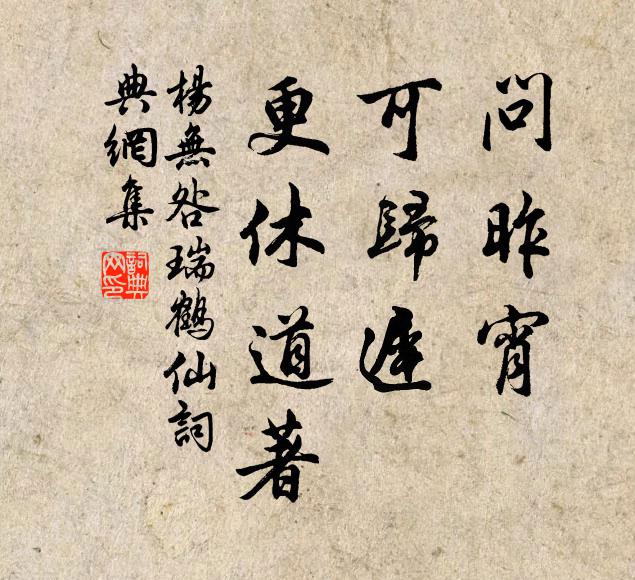 問昨宵
可歸遲
更休道著
楊無咎瑞鶴仙詞
典網集
詞典網印